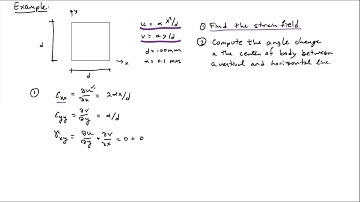 Example:
y
d
x
d
u = α x²/d
v = α y/d
d = 100 mm
α = 0.1 mm
① Find the strain field
② Compute the angle change
@ the center of body between
a vertical and horizontal line.
① εxx = ∂u/∂x = 2αx/d
εyy = ∂v/∂y = α/d
γxy = ∂u/∂y + ∂v/∂x = 0 + 0